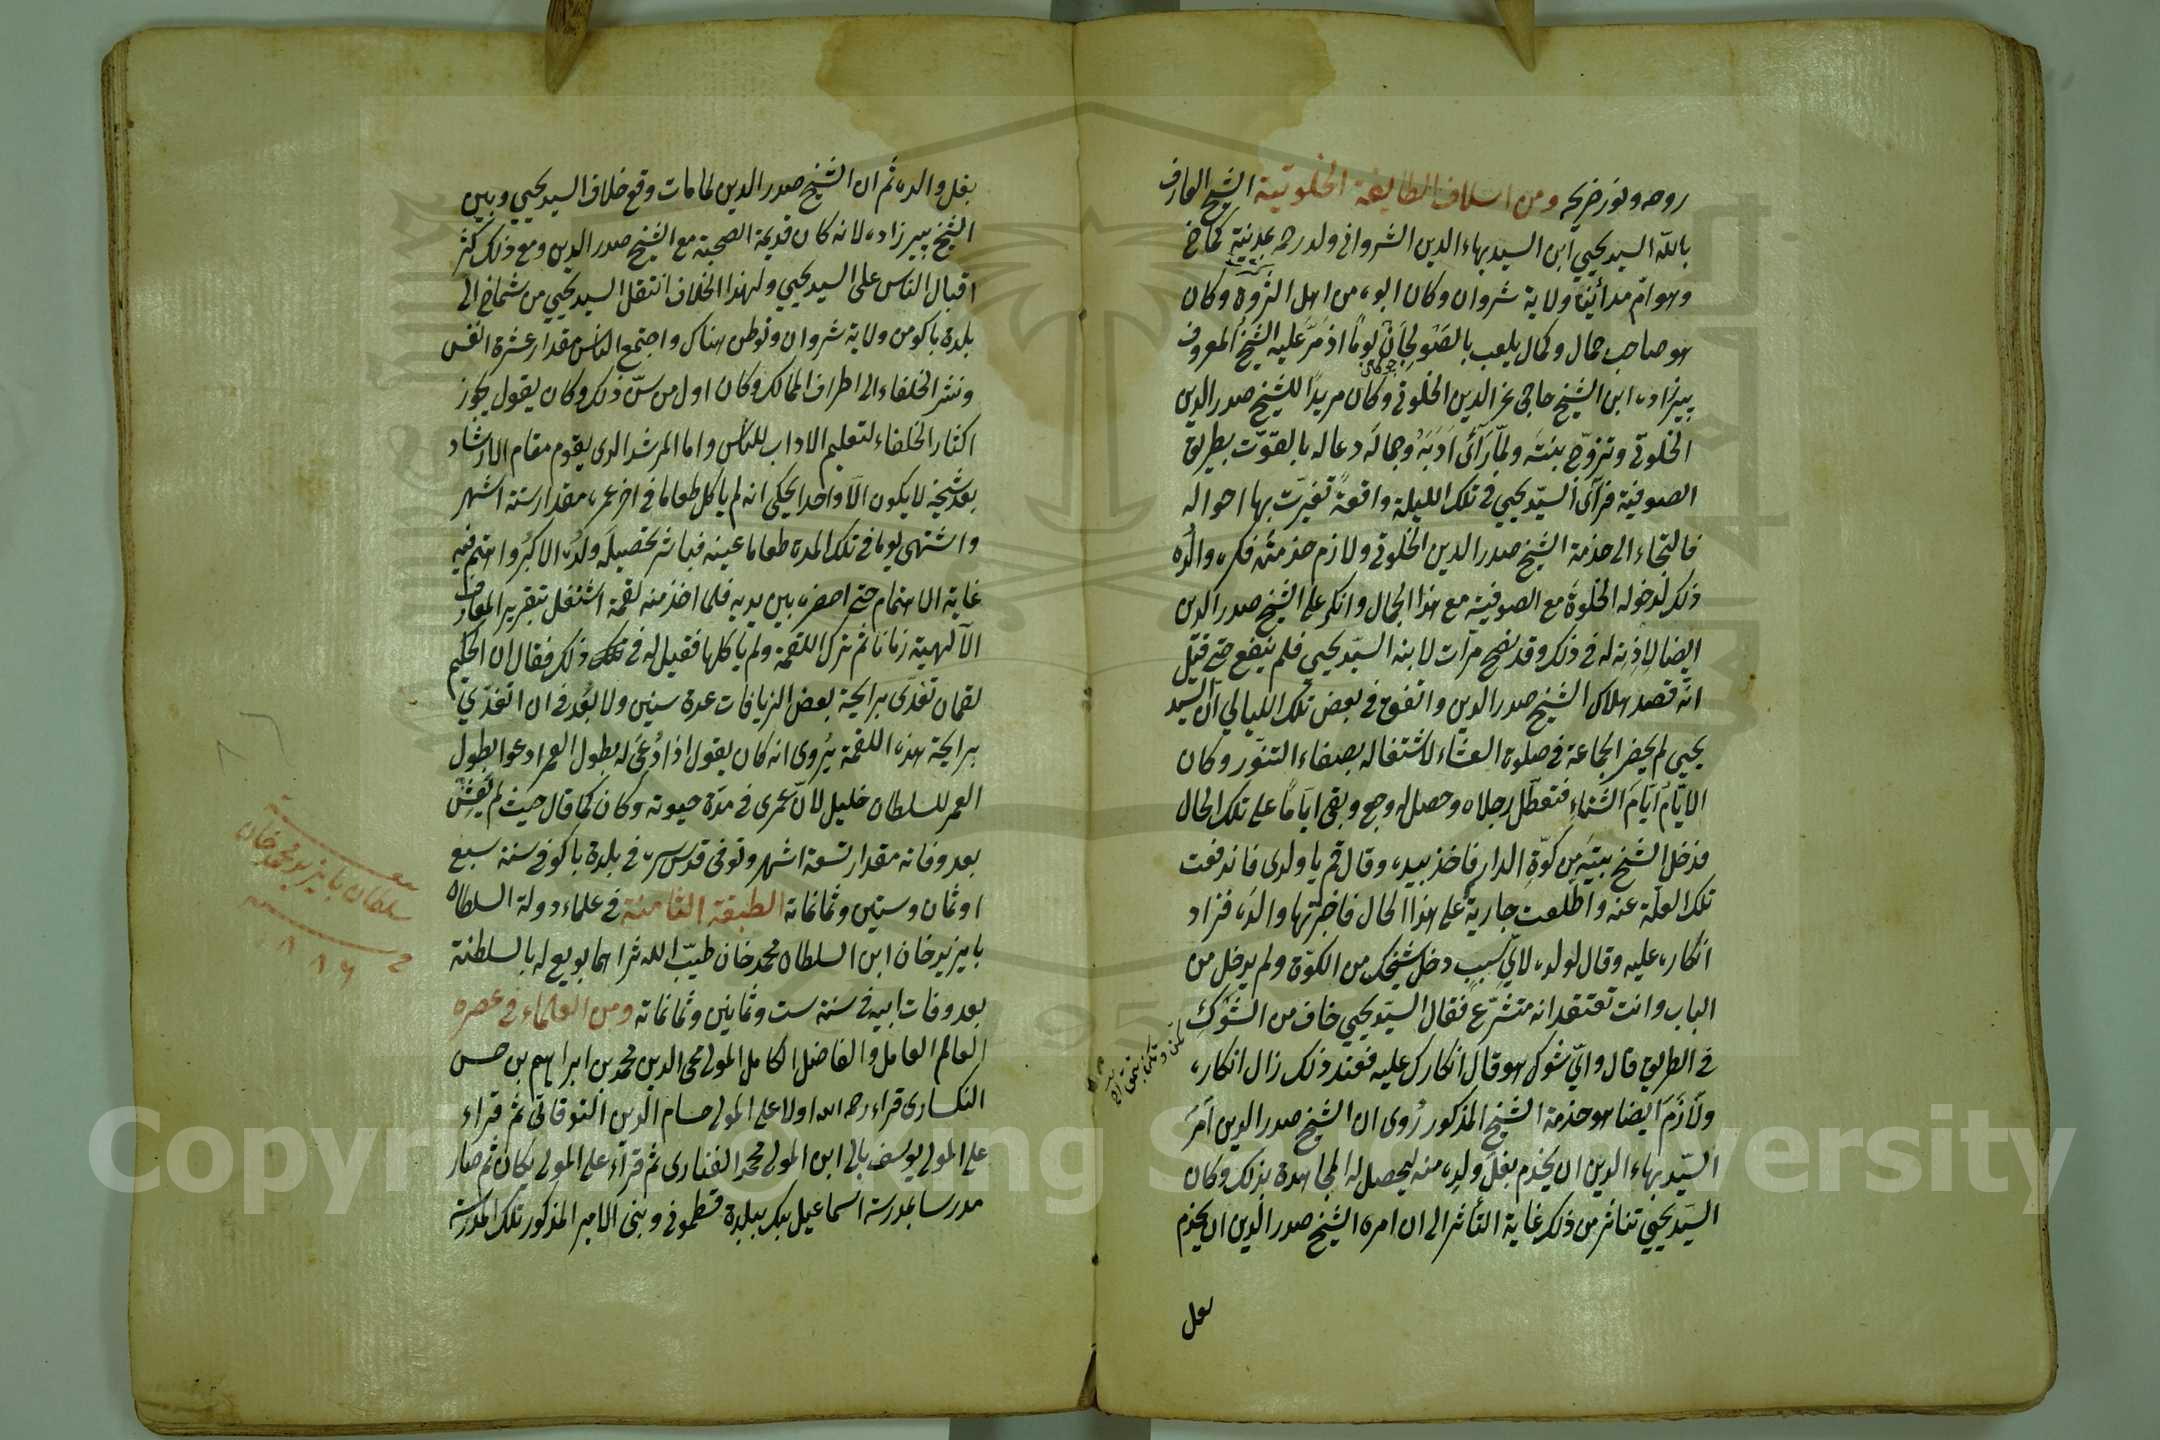 روحه ونور ضريحه ومن اسلاف الطايفة الخلوتية الشيخ العارف
بالله السيد يحيي ابن السيد بهاء الدين الشرواني ولد رحمه بمدينة شماخ
وهو ام مدائن ولاية شروان وكان ابوه من اهل الثروة وكان
هو صاحب جمال وكمال يلعب بالصولجان يوما اذ مر عليه الشيخ المعروف
بپيرزاده ابن الشيخ حاجى عز الدين الخلوتى وكان مريدا للشيخ صدر الدين
الخلوتى وتزوج بنته ولما رآى ادبه وجماله دعا له بالفوت بطريق
الصوفية فرآى السيد يحيي في تلك الليلة واقعة تغيرت بها احواله
فالتجاء الى خدمة الشيخ صدر الدين الخلوتى ولازم خدمته فكره والده
ذلك لدخوله الخلوة مع الصوفية مع هذا الجمال وانكر على الشيخ صدر الدين
ايضا لاذنه له في ذلك وقد نصح مرات لابنه السيد يحيي فلم ينفع حتى قيل
انه قصد هلاك الشيخ صدر الدين واتفق في بعض تلك الليالي ان السيد
يحيي لم يحضر الجماعة في صلوة العشاء لاشتغاله بصفاء التنور وكان
الايام ايام الشتاء فتعطل رجلاه وحصل له وجع وبقى اياما على تلك الحال
فدخل الشيخ بيته من كوة الدار فاخذ بيده وقال قم يا ولدى فاندفعت
تلك العلة عنه واطلعت جارية على هذا الحال فاخبرتها والده فزاد
انكاره عليه وقال لولده لاى سبب دخل شيخك من الكوة ولم يدخل من
الباب وانت تعتقد انه متشرع فقال السيد يحيي خاف من الشوك
في الطريق قال واي شوك هو قال انكارك عليه فعند ذلك زال انكاره
ولازم ايضا هو خدمة الشيخ المذكور روى ان الشيخ صدر الدين امر
السيد بهاء الدين ان يخدم بغل ولده منه ليحصل له المجاهدة بذلك وكان
السيد يحيي تتاثر من ذلك غاية التأثر الى ان امره الشيخ صدر الدين ان يخدم
بغل
بغل والده ثم ان الشيخ صدر الدين لما مات وقع خلاف السيد يحيي وبين
الشيخ پيرزاده لانه كان قديمة الصحبة مع الشيخ صدر الدين ومع ذلك كثر
اقبال الناس على السيد يحيي ولهذا الخلاف انتقل السيد يحيي من شماخ الى
بلدة باكو من ولاية شروان وتوطن هناك واجتمع الناس مقدار عشرة انفس
ونشر الخلفاء الى اطراف الممالك وكان اول من سن ذلك وكان يقول يجوز
اكثار الخلفاء لتعليم الاداب للناس واما المرشد الذى يقوم مقام الارشاد
بعد شيخه لا يكون الا واحدا يحكى انه لم ياكل طعاما في اخر عمره مقدار ستة اشهر
واشتهى يوما في تلك المدة طعاما عينه فباشر تحصيله ولده الاكبر واهتم فيه
غاية الاهتمام حتى احضره بين يديه فلما اخذ منه لقمة اشتغل بتقرير المعارف
الآلهية زمانا ثم ترك اللقمة ولم ياكلها فقيل له في ذلك فقال ان الحكيم
لقمان تغدى برايحة بعض الترياقات عدة سنين ولا بعد في ان اتغدي
برايحة هذه اللقمة يروى انه كان يقول اذا دعى له بطول العمر ادعوا بطول
العمر للسلطان خليل لان عمرى في مدة حيوته وكان كما قال حيث لم يعش
بعد وفاته مقدار تسعة اشهر وتوفى قدس سره في بلدة باكو في سنة سبع
او ثمان وستين وثمانمائة الطبقة الثامنة في علماء دولة السلطان
بايزيد خان ابن السلطان محمد خان طيب الله ثراهما بويع له بالسلطنة
بعد وفات ابيه في سنة ست وثمانين وثمانمائة ومن العلماء في عصره
العالم العامل والفاضل الكامل المولى محى الدين محمد بن ابراهيم بن حسن
النكسارى قراء رحمه الله اولا على المولى حسام الدين التوقاتى ثم قراء
على المولى يوسف بالى ابن المولى محمد الفنارى ثم قراء على المولى يكان ثم صار
مدرسا بمدرسة اسماعيل بك ببلدة قسطمونى وبنى الامير المذكور تلك المدرسة
سلطان بايزيد محمد خان
٨٨٦